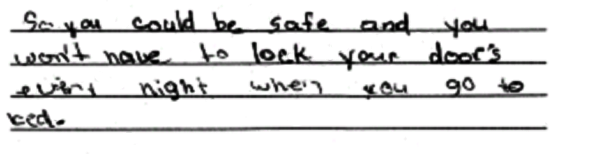 So you could be safe and you
won't have to lock your door's
every night when you go to
bed.